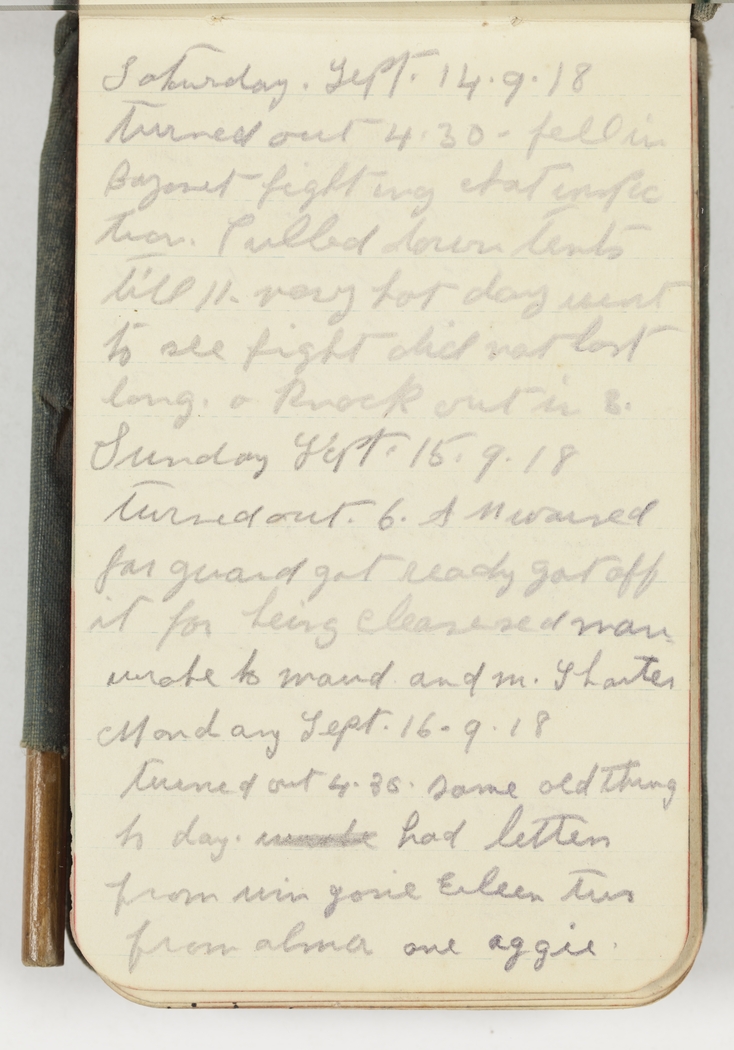 Saturday. Sept. 14.9.18
turned out 4.30 - fell in
Bayonet fighting chat inspec
tion. Pulled down tents
till 11. very hot day went
to see fight did not last
long. a Knock out in 3.
Sunday Sept. 15.9.18
turned out. 6. A M warned
for guard got ready got off
it for being cleanesed man
wrote to maud and m. Shorter
Monday Sept. 16-9.18
turned out 4.30. same old thing
to day. wrote had letters
from win gosie Eileen two
from alma one aggie.